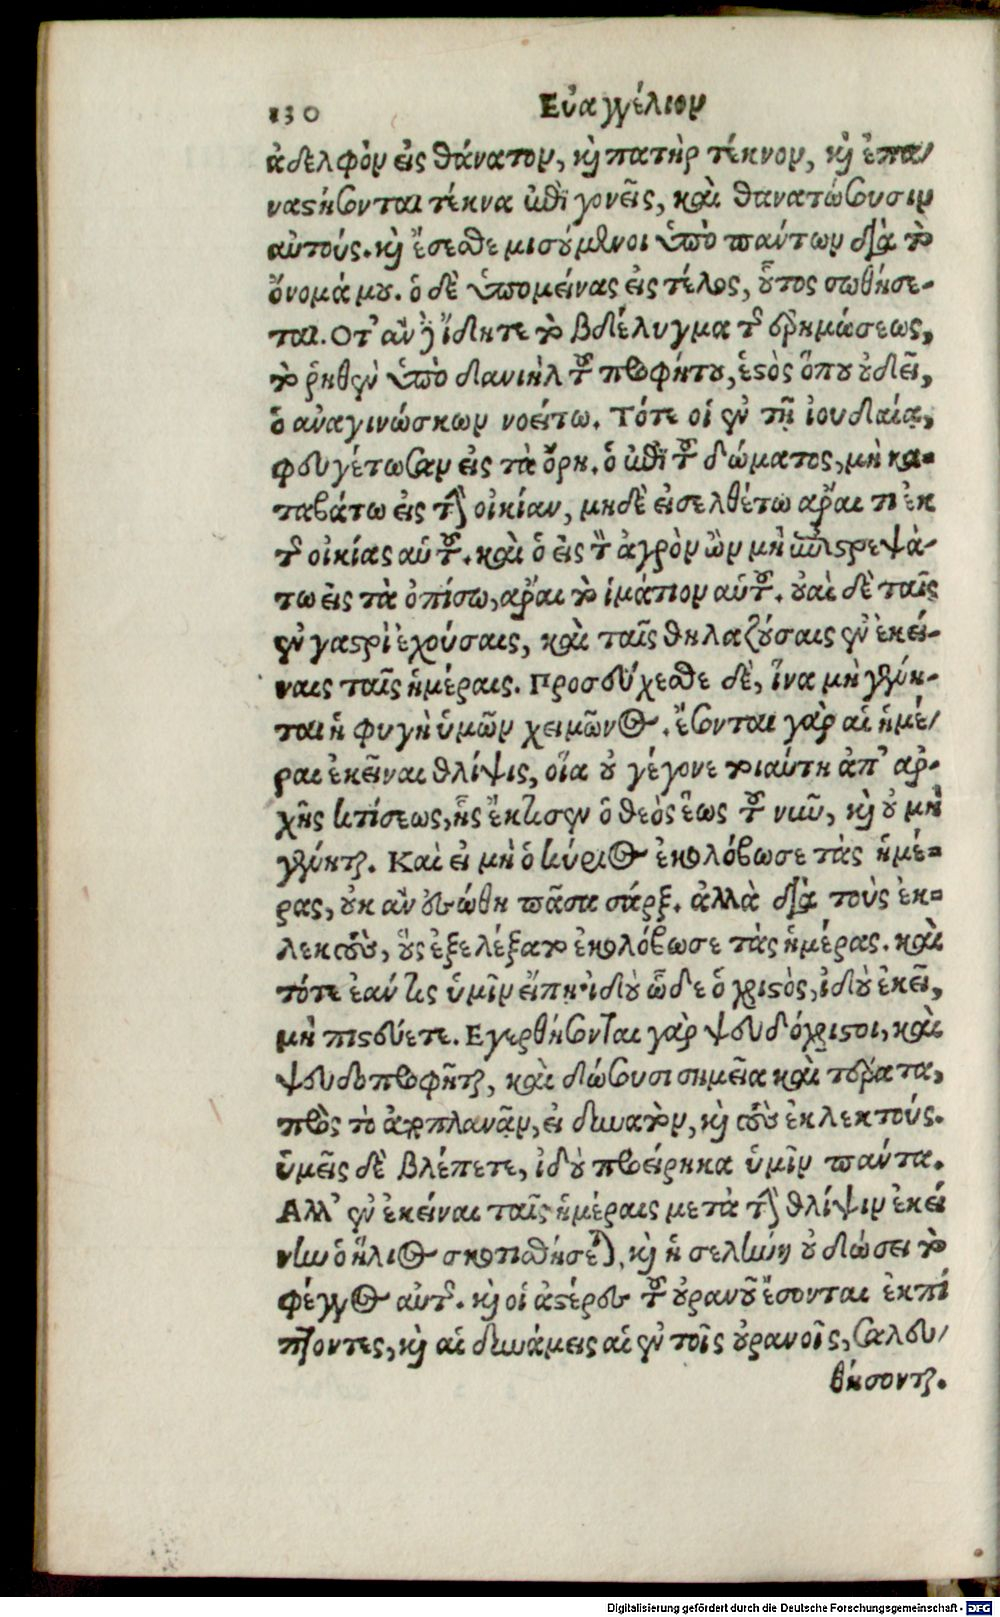 130 Εὐαγγέλιον
ἀδελφὸν εἰς θάνατον, κỳ πατὴρ τέκνον, κỳ ἐπα/
ναςήσονται τέκνα ἐπὶ γονεῖς, καὶ θανατώσουσιν
αὐτούς. κỳ ἔσεσθε μισούμενοι ὑπὸ πάντων διὰ τὸ
ὄνομά μου. ὁ δὲ ὑπομείνας εἰς τέλος, οὗτος σωθήσε-
ται. Ὅτ' ἂν ἢ ἴδητε τὸ βδέλυγμα τῆς ἐρημώσεως,
τὸ ῥηθὲν ὑπὸ δανιὴλ τοῦ προφήτου, ἑςὸς ὅπου οὐ δεῖ,
ὁ ἀναγινώσκων νοείτω. Τότε οἱ ἐν τῇ ἰουδαίᾳ,
φευγέτωσαν εἰς τὰ ὄρη. ὁ ἐπὶ τοῦ δώματος, μὴ κα-
ταβάτω εἰς τὴν οἰκίαν, μηδὲ εἰσελθέτω ἆραι τι ἐκ
τῆς οἰκίας αὑτοῦ. καὶ ὁ εἰς τὸν ἀγρὸν ὢν μὴ ἐπιςρεψά-
τω εἰς τὰ ὀπίσω, ἆραι τὸ ἱμάτιον αὑτοῦ. οὐαὶ δὲ ταῖς
ἐν γαςρὶ ἐχούσαις, καὶ ταῖς θηλαζούσαις ἐν ἐκεί-
ναις ταῖς ἡμέραις. Προσεύχεσθε δὲ, ἵνα μὴ γένη-
ται ἡ φυγὴ ὑμῶν χειμῶνος. ἔσονται γὰρ αἱ ἡμέ/
ραι ἐκεῖναι θλίψις, οἵα οὐ γέγονε τοιαύτη ἀπ' ἀρ-
χῆς κτίσεως, ἧς ἔκτισεν ὁ θεὸς ἕως τοῦ νῦν, κỳ οὐ μὴ
γένηται. Καὶ εἰ μὴ ὁ κύριος ἐκολόβωσε τὰς ἡμέ-
ρας, οὐκ ἂν ἐσώθη πᾶσα σάρξ. ἀλλὰ διὰ τοὺς ἐκ-
λεκτοὺς, οὓς ἐξελέξατο ἐκολόβωσε τὰς ἡμέρας. καὶ
τότε ἐάν τις ὑμῖν εἴπῃ· ἰδοὺ ὧδε ὁ χριςὸς, ἰδοὺ ἐκεῖ,
μὴ πιςεύετε. Ἐγερθήσονται γὰρ ψευδόχριςοι, καὶ
ψευδοπροφῆται, καὶ δώσουσι σημεῖα καὶ τέρατα,
πρὸς τὸ ἀποπλανᾷν, εἰ δυνατὸν, κỳ τοὺς ἐκλεκτούς.
ὑμεῖς δὲ βλέπετε, ἰδοὺ προείρηκα ὑμῖν πάντα.
Ἀλλ' ἐν ἐκείναι ταῖς ἡμέραις μετὰ τὴν θλίψιν ἐκεί
νην ὁ ἥλιος σκοτισθήσεται, κỳ ἡ σελήνη οὐ δώσει τὸ
φέγγος αὑτῆς. κỳ οἱ ἀςέρες τοῦ οὐρανοῦ ἔσονται ἐκπί
πτοντες, κỳ αἱ δυνάμεις αἱ ἐν τοῖς οὐρανοῖς, σαλευ/
θήσονται.
Digitalisierung gefördert durch die Deutsche Forschungsgemeinschaft - DFG